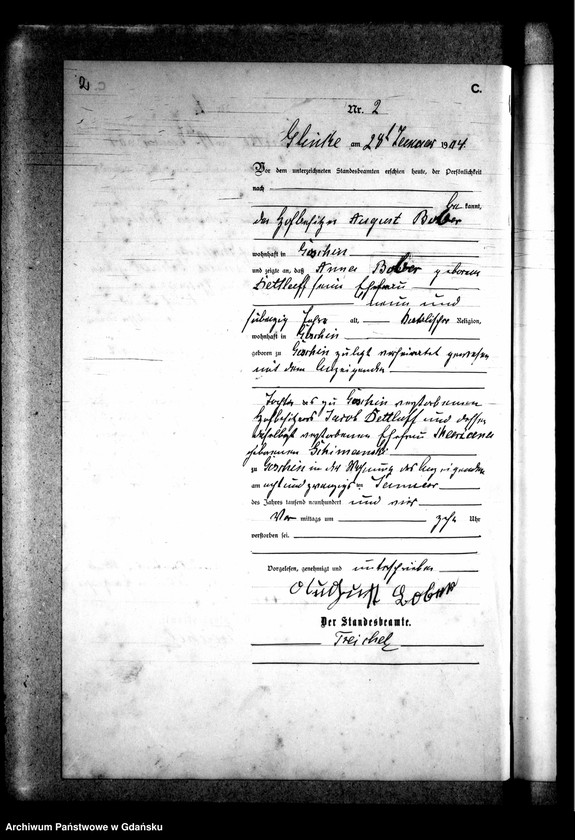 2
C.
Nr. 2
Glinke am 28t Januar 1904.
Vor dem unterzeichneten Standesbeamten erschien heute, der Persönlichkeit
nach
be kannt,
der Hofbesitzer August Bober
wohnhaft in Goschin
und zeigte an, daß Anna Bober geborene
Dettlaff seine Ehefrau
neun und
siebenzig Jahre alt, Katolischer Religion,
wohnhaft in Goschin
geboren zu Goschin zuletzt verheiratet gewesen
mit dem Anzeigenden
Tochter des zu Goschin verstorbenen
Hofbesitzers Jacob Dettlaff und dessen
daselbst verstorbenen Ehefrau Marianna
geborenen Schimanski
zu Goschin in der Wohnung des Anzeigenden
am acht und zwanzigsten Januar
des Jahres tausend neunhundert und vier
Vor mittags um zehn Uhr
verstorben sei.
Vorgelesen, genehmigt und unterschrieben
August Bober
Der Standesbeamte.
Treichel
Archiwum Państwowe w Gdańsku